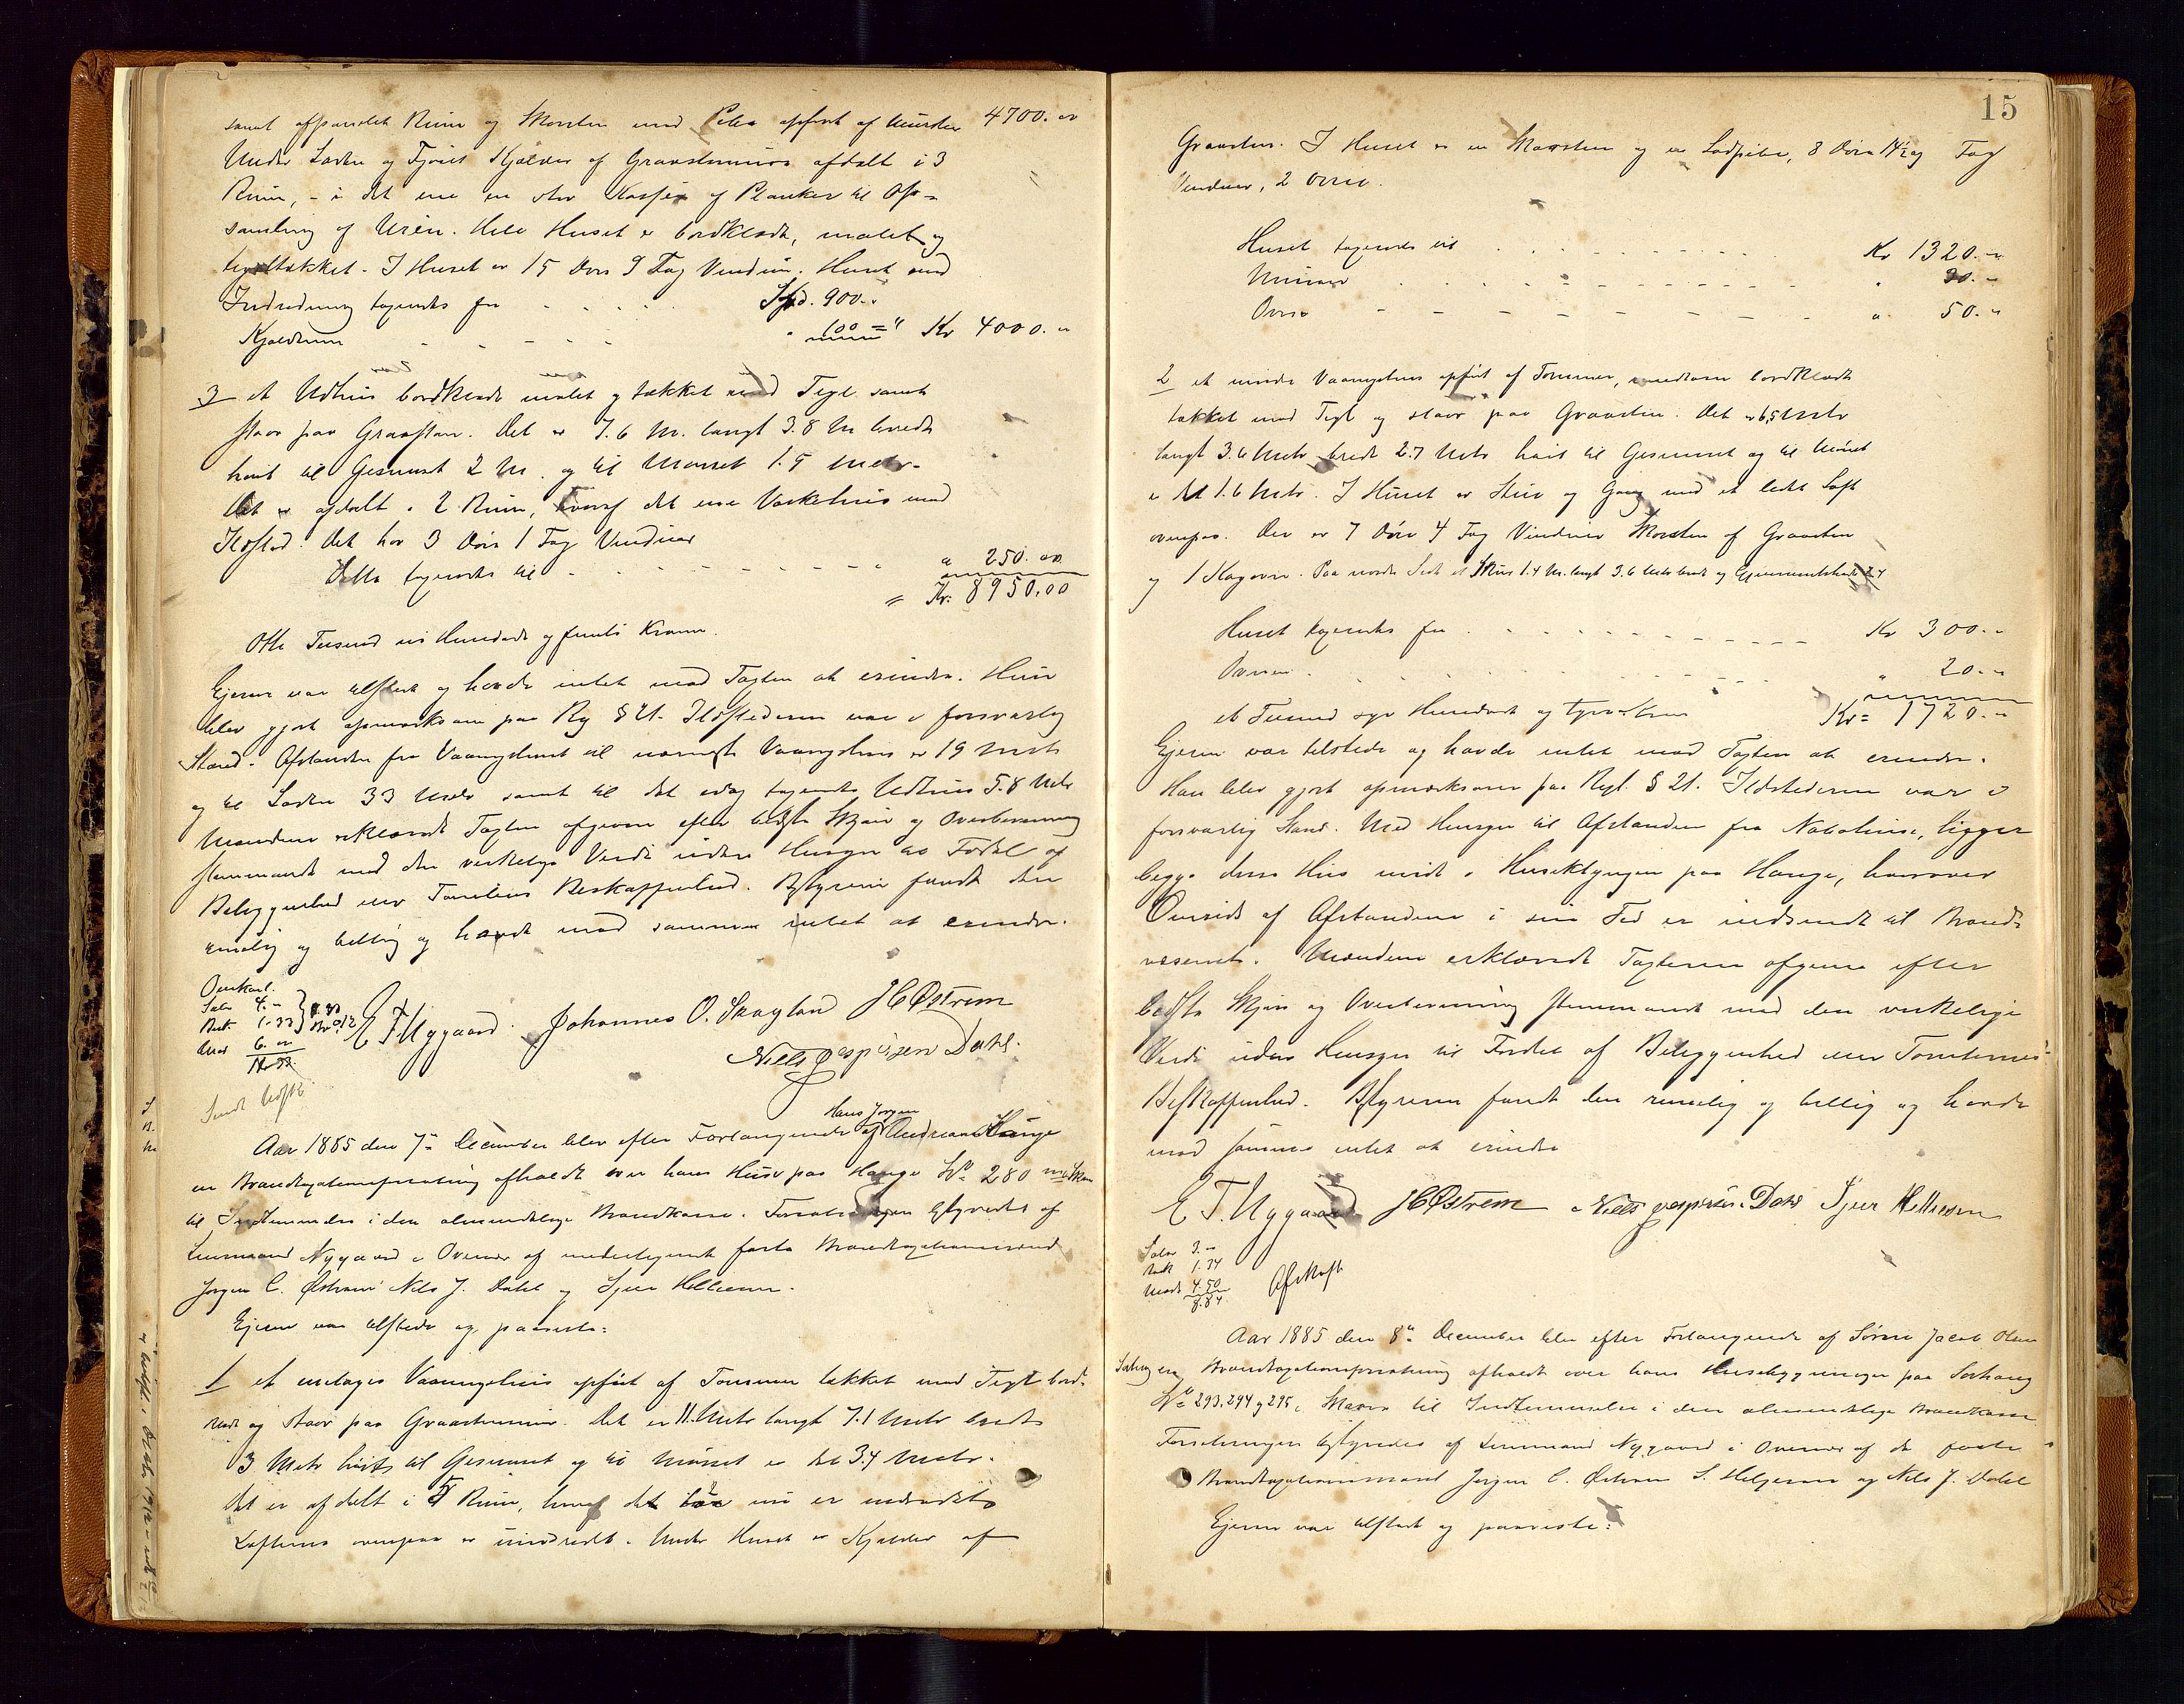 samt afpanelet Rum og Skorsten med Piber opført af Mursten 4700. 00
Under Laden og Fjøset Kjælder af Graastensmur afdelt i 3
Rum, - i det ene en stor Kasse af Planker til Op-
samling af Urin. Hele Huset er bordklædt, malet og
tegltækket. I Huset er 15 Døre 9 Fag Vinduer. Huset med
Indredning taxeredes for Spd. 900. "
Kjælderen " 100 = " Kr 4000. "
3 et Udhus bordklædt malet og tækket med Tegl samt
staar paa Graasten. Det er 7.6 M. langt 3.8 M bredt
høit til Gesimset 2 M. og til Mønset 1.5 Meter.
Det er afdelt i 2 Rum, hvoraf det ene Vaskehus med
Ildsted. Det har 3 Døre 1 Fag Vinduer
Dette taxeredes til " 250. 00
= Kr. 8950,00
Otte Tusend ni Hundrede og femti Kroner.
Ejeren var tilstede og havde intet mod Taxten at erindre. Hun
blev gjort opmærksom paa Rg § 21. Ildstederne var i forsvarlig
Stand. Afstanden fra Vaaningshuset til nærmeste Vaaningshus er 19 Meter
og til Laden 33 Meter samt til det idag taxerede Udhus 5.8 Meter
Mændene erklærede Taxten afgiven efter bedste Skjøn og Overbevisning
stemmende med den virkelige Værdi uden Hensyn til Fordel af
Beliggenhed eller Tomtens Beskaffenhed. Bestyreren fandt den
rimelig og billig og havde mod samme intet at erindre.
Omkost.
Salær 4. "
1.33
6. 00
11.33
E T Nygaard. Johannes O. Skogland J C Østrem
Niels Jespersen Dahl.
Sendt Udskr.
Hans Jørgen
Aar 1885 den 7de December blev efter Forlangende af Andreas Hauge
en Brandtaxationsforretning afholdt over hans Huse paa Hauge Lº No 280
til Indlemmelse i den almindelige Brandkasse. Forretningen bestyredes af
Lensmand Nygaard i Overvær af undertegnede faste Brandtaxationsmænd
Jørgen C. Østrem Nils J. Dahl og Sjur Helliesen.
Ejeren var tilstede og paaviste:
1 et enetages Vaaningshus opført af Tømmer tækket med Tegl bord-
klædt og staar paa Graastensmur. Det er 11. Meter langt 7.1 Meter bredt
3 Meter høit til Gesimset og til Mønset er det 3.4 Meter.
Det er afdelt i 5 Rum, hvoraf det er indredet
Loftet ovenpaa er uindredt. Under Huset er Kjælder af
15
Graasten. I Huset er en Skorsten og en Ladpibe, 8 Døre 14½ Fag
Vinduer, 2 Ovne.
Huset taxeredes til Kr 1320. "
Muren " 30. "
Ovne " 50. "
2 et mindre Vaaningshus opført af Tømmer, rundtom bordklædt
tækket med Tegl og staar paa Graasten. Det er 6,5 Meter
langt 3.6 Meter bredt 2.7 Meter høit til Gesimset og til Mønset
er det 1.6 Meter. I Huset er Stue og Gang med et lidet Loft
ovenpaa. Der er 7 Døre 4 Fag Vinduer Skorsten af Graasten
og 1 Kogeovn. Paa nordre Side et Skur 1.4 M. langt 3.6 Meter bredt og Gjennemsnitshøide 2.4
Huset taxeredes for Kr 300. "
Ovnen " 20. "
et Tusend syv Hundrede og tyve Kroner Kr = 1720. "
Ejeren var tilstede og havde intet mod Taxten at erindre.
Han blev gjort opmærksom paa Regl. § 21. Ildstederne var i
forsvarlig Stand. Med Hensyn til Afstanden fra Nabohuse, ligger
begge disse Hus midt i Huseklyngen paa Hauge, hvorover
Omrids af Afstandene i sin Tid er indsendt til Brand-
væsenet. Mændene erklærede Taxterne afgivne efter
bedste Skjøn og Overbevisning stemmende med den virkelige
Værdi uden Hensyn til Fordel af Beliggenhed eller Tomternes
Beskaffenhed. Bestyreren fandt den rimelig og billig og havde
mod samme intet at erindre
E T. Nygaard J C Østrem Niels Jespersen Dahl Sjur Helliesen
Salær 3. "
1.34
4.50
8.84
Afskrift
Aar 1885 den 8de December blev efter Forlangende af Søren Jacob Olsen
en Brandtaxationsforretning afholdt over hans Husebygninger paa
Lº No 293, 294 og 295 i til Indlemmelse i den almindelige Brandkasse
Forretningen bestyredes af Lensmand Nygaard i Overvær af de faste
Brandtaxationsmænd Jørgen C. Østrem S. Helliesen og Nils J. Dahl
Ejeren var tilstede og paaviste: